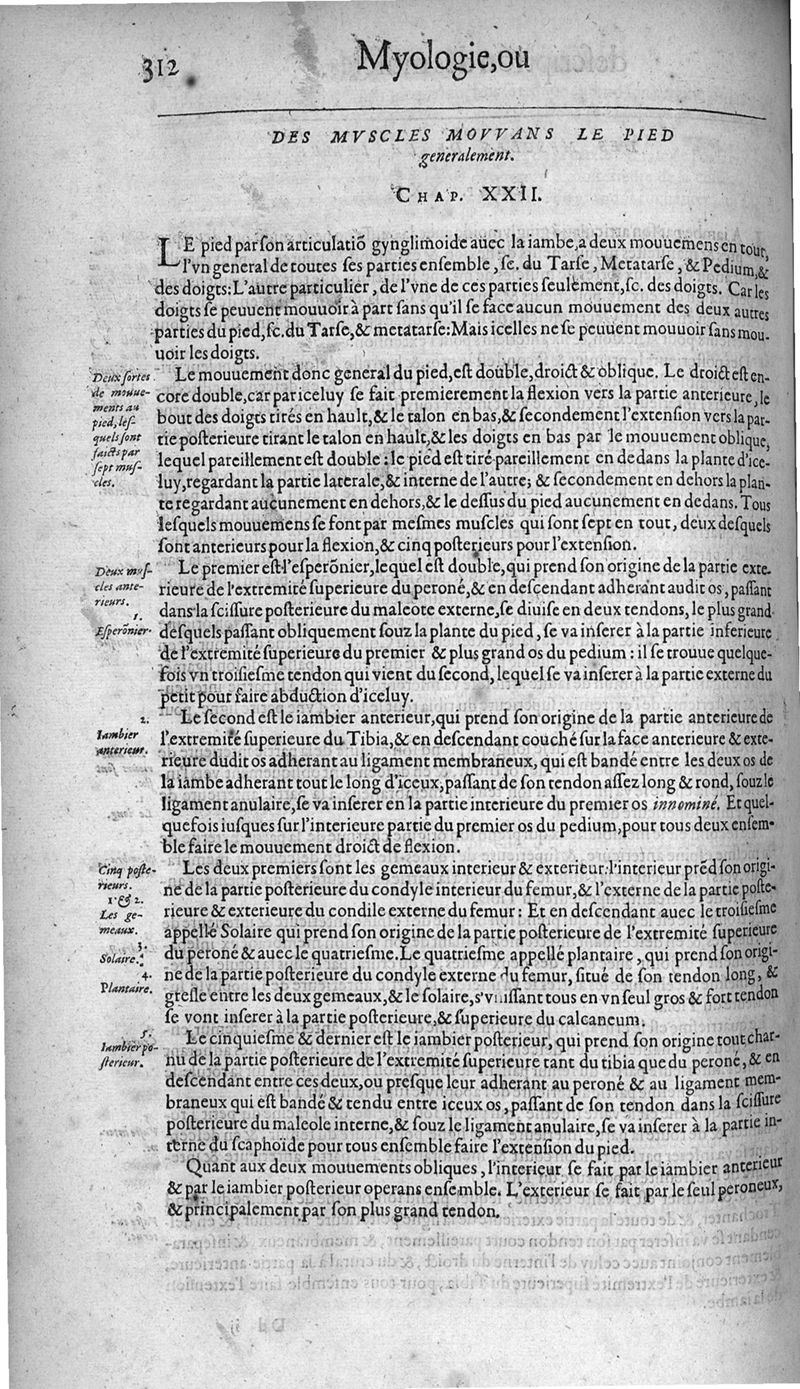 312
Myologie,ou
DES MVSCLES MOVVANS LE PIED
generalement.
CHAP. XXII.
LE pied par son articulatiõ gynglimoide auec la iambe,a deux mouuemens en tout,
l'vn general de toutes ses parties ensemble, sc. du Tarse, Metatarse, & Pedium,&
des doigts:L'autre particulier, de l'vne de ces parties seulement,sc. des doigts. Car les
doigts se peuuent mouuoir à part sans qu'il se face aucun mouuement des deux autres
parties du pied,sc. du Tarse,& metatarse:Mais icelles ne se peuuent mouuoir sans mou-
uoir les doigts.
Deux sortes
de mouue-
ments au
pied, les-
quels sont
faicts par
sept mus-
cles.
Le mouuement donc general du pied,est double,droict & oblique. Le droict est en-
core double,car par iceluy se fait premierement la flexion vers la partie anterieure,le
bout des doigts tirés en hault,& le talon en bas,& secondement l'extension vers la par-
tie posterieure tirant le talon en hault,& les doigts en bas par le mouuement oblique,
lequel pareillement est double : le pied est tiré pareillement en dedans la plante d'ice-
luy,regardant la partie laterale,& interne de l'autre; & secondement en dehors la plan-
te regardant aucunement en dehors,& le dessus du pied aucunement en dedans. Tous
lesquels mouuemens se font par mesmes muscles qui sont sept en tout, deux desquels
sont anterieurs pour la flexion,& cinq posterieurs pour l'extension.
Deux mus-
cles ante-
rieurs.
1.
Esperõnier.
Le premier est l'esperõnier,lequel est double,qui prend son origine de la partie exte-
rieure de l'extremité superieure du peroné,& en descendant adherant audit os, passant
dans la scissure posterieure du maleote externe,se diuise en deux tendons, le plus grand
desquels passant obliquement souz la plante du pied, se va inserer à la partie inferieure
de l'extremité superieure du premier & plus grand os du pedium : il se trouue quelque-
fois vn troisiesme tendon qui vient du second, lequel se va inserer à la partie externe du
petit pour faire abduction d'iceluy.
2.
Iambier
anterieur.
Le second est le iambier anterieur,qui prend son origine de la partie anterieure de
l'extremité superieure du Tibia,& en descendant couché sur la face anterieure & exte-
rieure dudit os adherant au ligament membraneux, qui est bandé entre les deux os de
la iambe adherant tout le long d'iceux,passant de son tendon assez long & rond, souz le
ligament anulaire,se va inserer en la partie interieure du premier os innominé. Et quel-
quefois iusques sur l'interieure partie du premier os du pedium,pour tous deux ensem-
ble faire le mouuement droict de flexion.
Cinq poste-
rieurs.
1. & 2.
Les ge-
meaux.
3.
Solaire.
4.
Plantaire.
Les deux premiers sont les gemeaux interieur & exterieur:l'interieur prẽd son origi-
ne de la partie posterieure du condyle interieur du femur,& l'externe de la partie poste-
rieure & exterieure du condile externe du femur : Et en descendant auec le troisiesme
appellé Solaire qui prend son origine de la partie posterieure de l'extremité superieure
du peroné & auec le quatriesme. Le quatriesme appellé plantaire, qui prend son origi-
ne de la partie posterieure du condyle externe du femur, situé de son tendon long, &
gresle entre les deux gemeaux,& le solaire,s'vnissant tous en vn seul gros & fort tendon
se vont inserer à la partie posterieure,& superieure du calcaneum.
5.
Iambier po-
sterieur.
Le cinquiesme & dernier est le iambier posterieur, qui prend son origine tout char-
nu de la partie posterieure de l'extremité superieure tant du tibia que du peroné,& en
descendant entre ces deux,ou presque leur adherant au peroné & au ligament mem-
braneux qui est bandé & tendu entre iceux os, passant de son tendon dans la scissure
posterieure du maleole interne,& souz le ligament anulaire,se va inserer à la partie in-
terne du scaphoïde pour tous ensemble faire l'extension du pied.
Quant aux deux mouuements obliques, l'interieur se fait par le iambier anterieur
& par le iambier posterieur operans ensemble. L'exterieur se fait par le seul peroneux,
& principalement par son plus grand tendon.